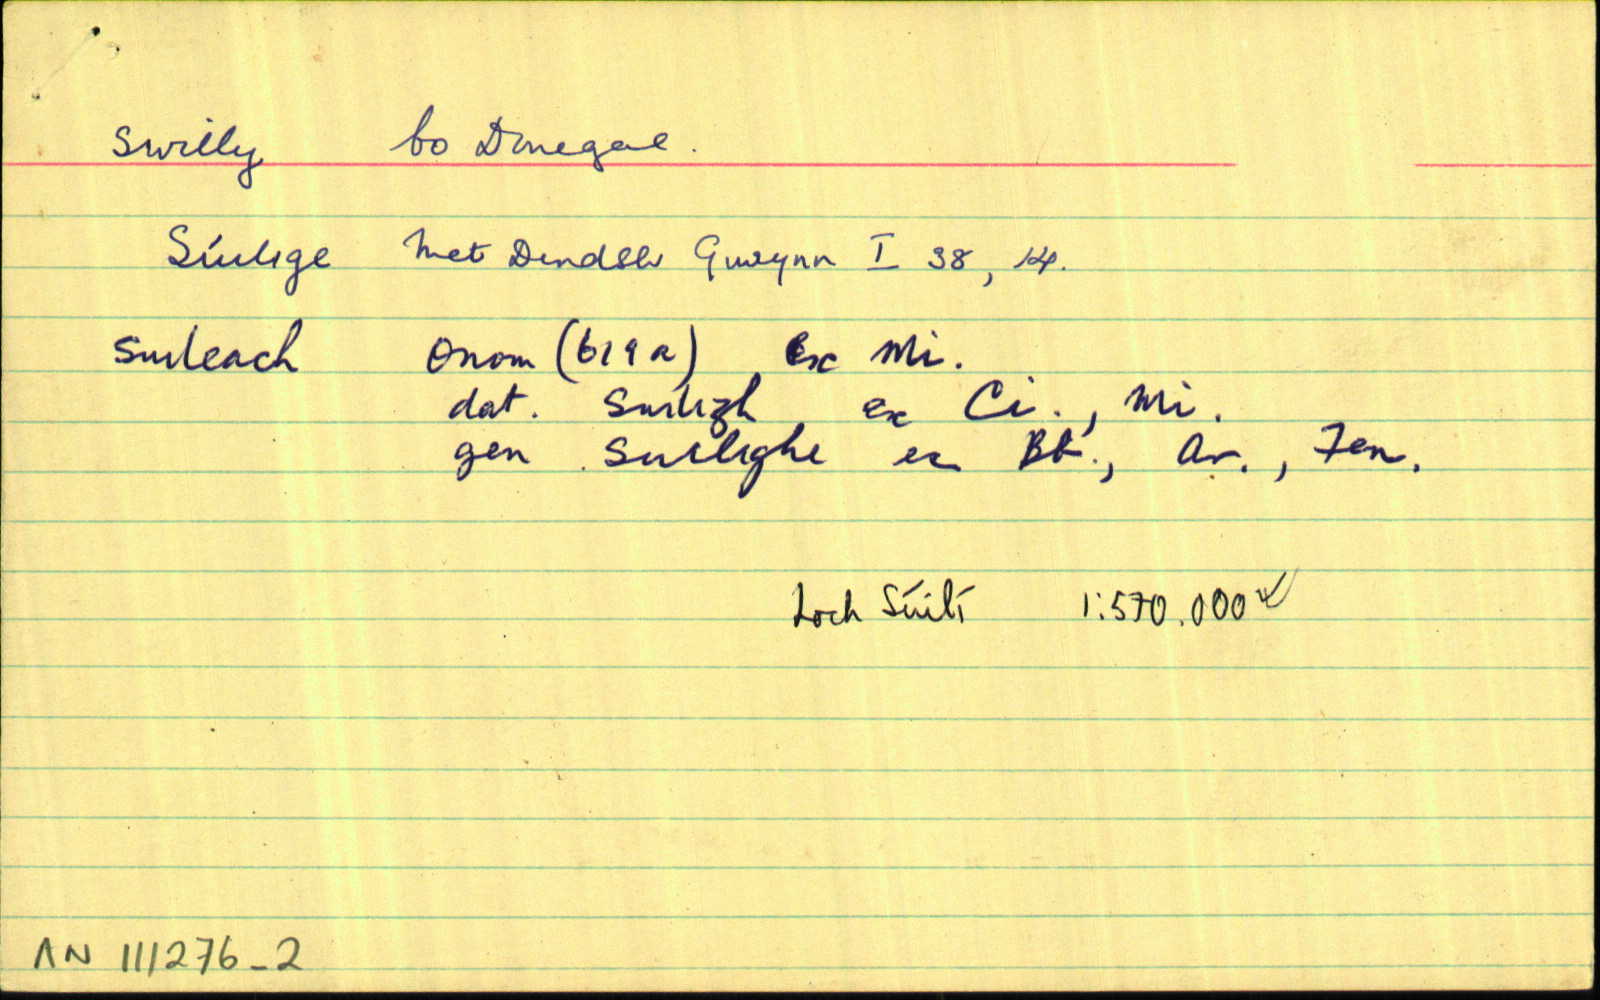 Swilly Co Donegal.
Súilige Met Dindsh Gwynn I 38, 14.
Suileach Onom (619a) Ex Mi.
dat. Suiligh ex Ci., Mi.
gen Suilighe ex Bk., Ar., Fen.
Loch Súilí 1:570.000
AN 111276_2